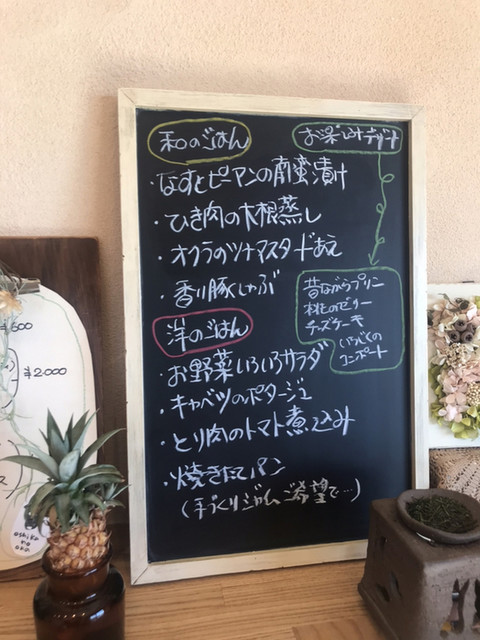 和のごはん
・なすとピーマンの南蛮漬け
・ひき肉の大根蒸し
・オクラのツナマスタードあえ
・香り豚しゃぶ
洋のごはん
・お野菜いろいろサラダ
・キャベツのポタージュ
・とり肉のトマト煮込み
・焼きたてパン
(手づくりジャム、ご希望で…)
お楽しみデザート
昔ながらプリン
桃のゼリー
チーズケーキ
いちじくの
コンポート
¥2.000